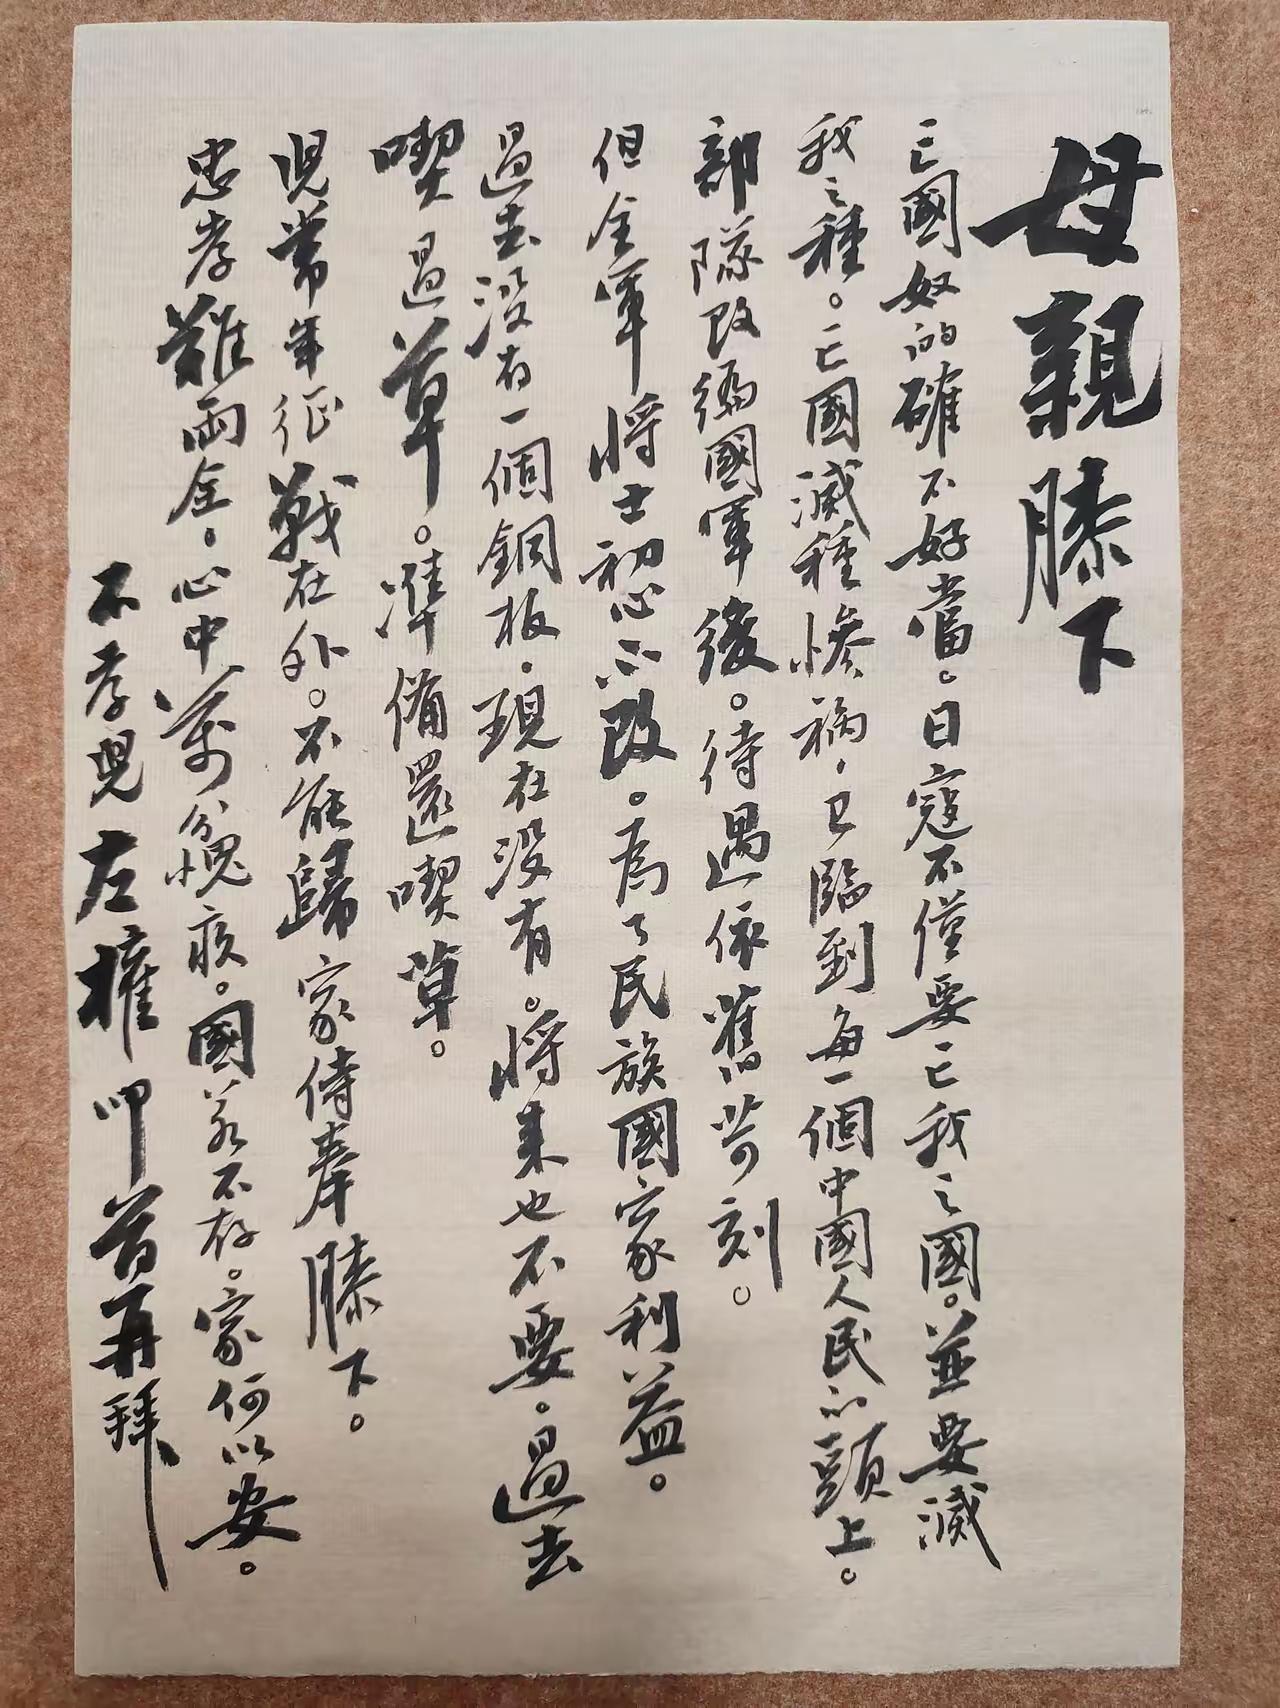 母親膝下
亡國奴的確不好當。日寇不僅要亡我之國。並要滅
我之種。亡國滅種慘禍，已臨到每一個中國人民的頭上。
部隊改編國軍後。待遇依舊苛刻。
但全軍將士初心不改。為了民族國家利益。
過去没有一個銅板，現在没有。將来也不要。過去
喫過草。準備還喫草。
児常年征戰在外。不能歸家侍奉膝下。
忠孝難両全，心中萬分愧疚。國若不存。家何以安。
不孝児左權叩首再拜